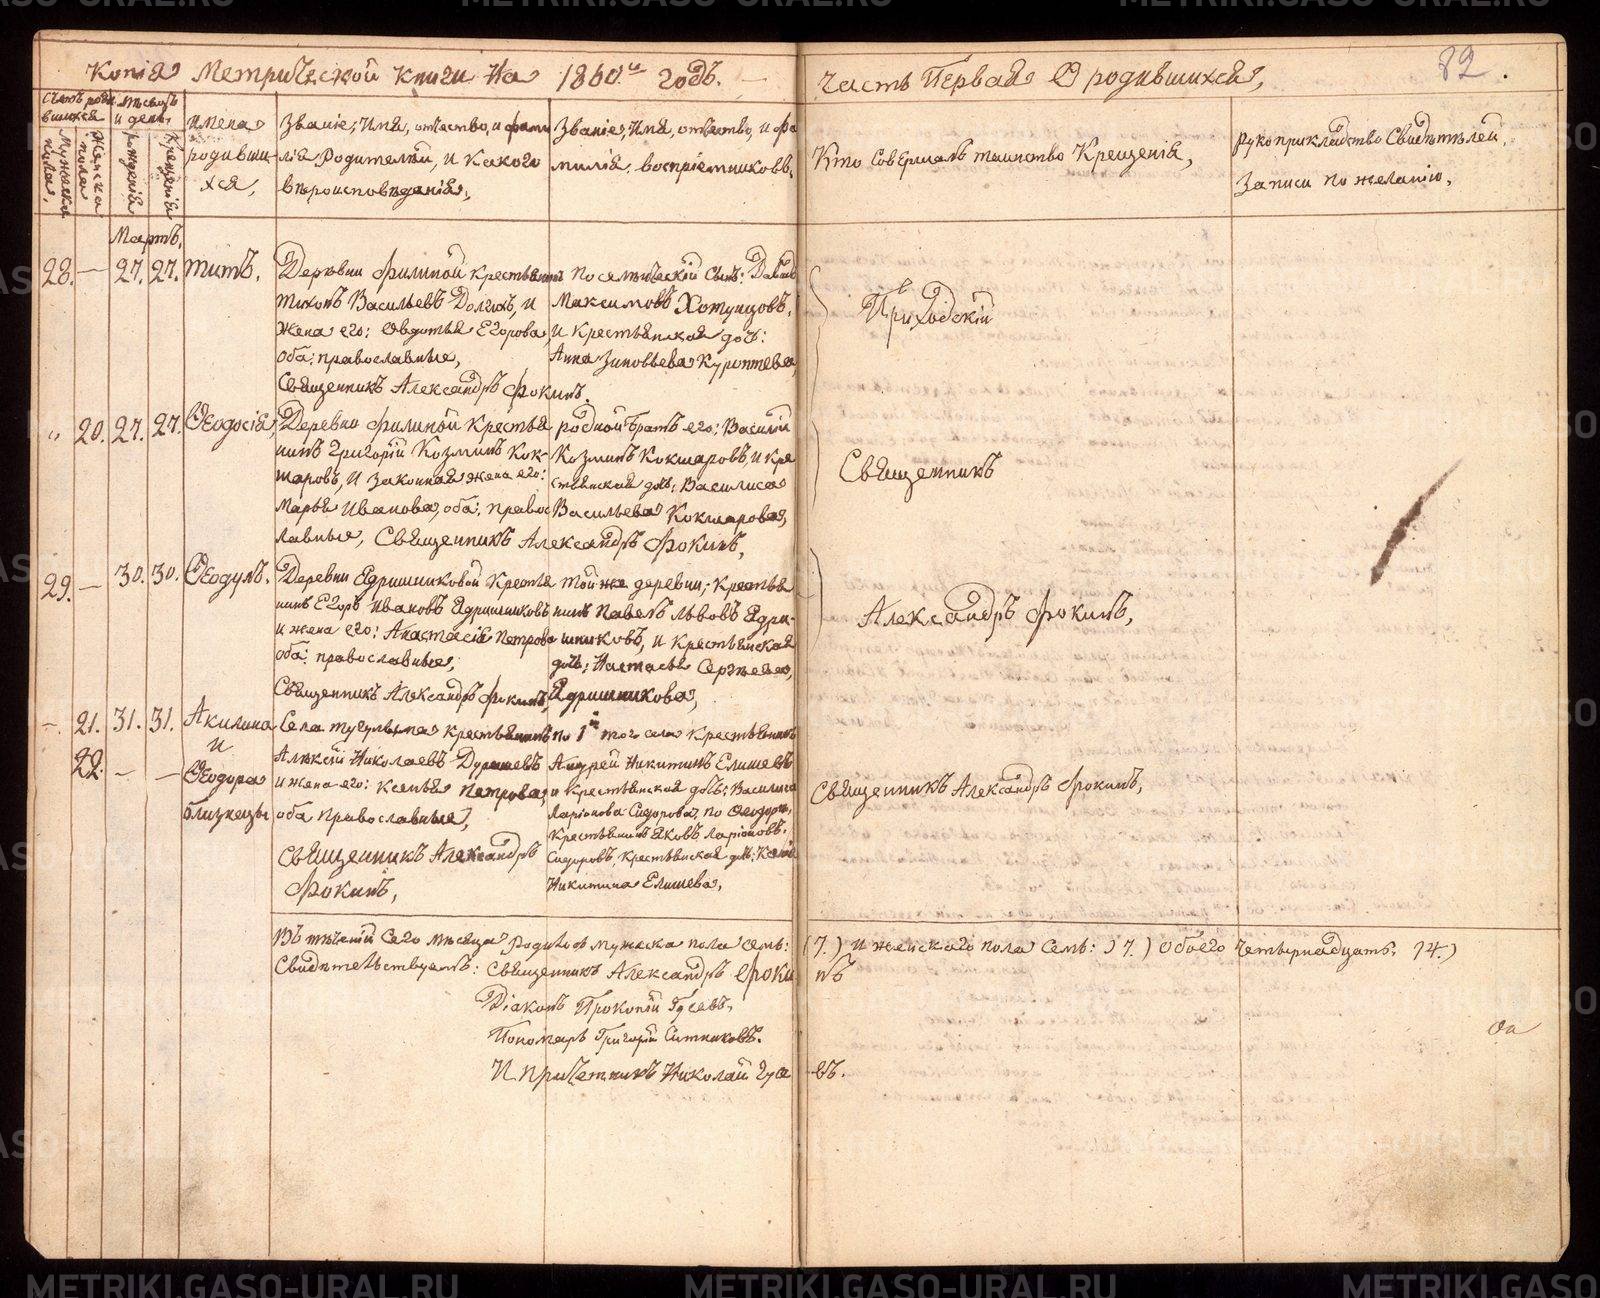 Копія Метрической книги На 1860.й годъ. Часть Первая О родившихся,
82.
Счетъ роди
вшихся
Мужеска
пола,
Женска
пола
Мѣсяцъ
и день,
рожденія
Крещенія
имена
родивши-
хся,
Званіе, Имя, отчество, и фами
лія Родителей, и Какого
вѣроисповѣданія,
Званіе, Имя, отчество, и фа
милія воспріемниковъ,
Кто Совершалъ таинство Крещенія,
Рукоприкладство Свидѣтелей,
Записи по желанію,
Мартъ,
28. — 27. 27. Титъ.
Деревни Филиной Крестьянинъ
Тихонъ Васильевъ Долгихъ, и
Жена его: Овдотья Егорова,
оба: православные,
Священникъ Александръ Фокинъ.
Сынъ: Давыдъ
Максимовъ Хотунцовъ,
и Крестьянская дочь:
Анна Зиновьева
Приходскій
" 20. 27. 27. Ѳеодосія,
Деревни Филиной Крестья
нинъ Григорій Козминъ Кок-
шаровъ, и Законная жена его:
Марья Иванова, оба: правос
лавные, Священникъ Александръ Фокинъ,
родной братъ его: Василій
Козминъ Кокшаровъ, и Кре
стьянская дочь: Василиса
Васильева Кокшарова,
Священникъ
29. — 30. 30. Ѳеодулъ.
Деревни Ядришниковой Крестья
нинъ Егоръ Ивановъ Ядришниковъ
и жена его: Анастасія Петрова
оба: православные,
Священникъ Александръ Фокинъ,
Той же деревни; Крестья
нинъ Павелъ Львовъ Ядри-
шниковъ, и Крестьянская
дочь; Настасья Сергѣева,
Ядришникова,
Александръ Фокинъ,
— 21. 31. 31. Акилина
и
22. — — Ѳеодора
близнецы
Села Тугулыма Крестьянинъ
Алексѣй Николаевъ
и жена его: Ксенья Петрова,
оба православные,
Священникъ Александръ
Фокинъ,
по 1й того села Крестьянинъ
Андрей Никитинъ Елишевъ
и Крестьянская дочь: Василиса
Ларіонова Сидорова, по Ѳеодорѣ,
Крестьянинъ Яковъ Ларіоновъ
Сидоровъ, Крестьянская дочь:
Никитина Елишева,
Священникъ Александръ Фокинъ,
Въ теченіи Сего мѣсяца родилось мужеска пола семь: (7.) и женскаго пола Семь: )7.) обоего Четырнадцать. 14.)
Свидѣтельствуемъ: Священникъ Александръ Фокинъ
Діаконъ Прокопій Гусевъ,
Пономарь Григорій Ситниковъ.
И. причетникъ Николай Гусевъ.